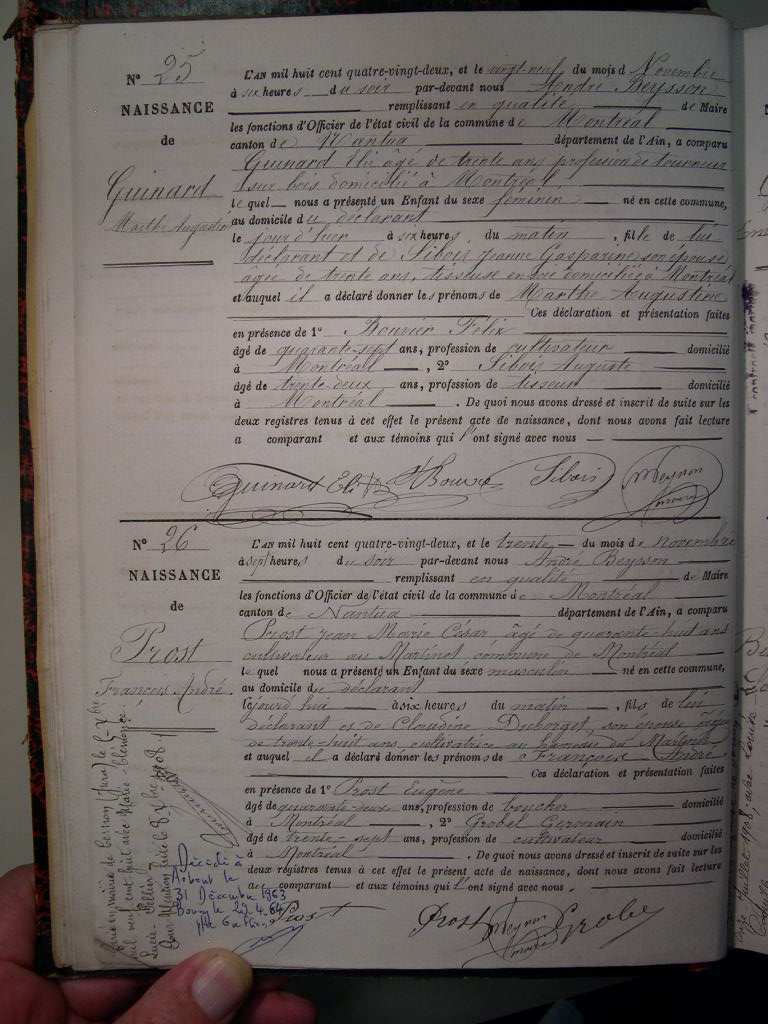 N° 25
NAISSANCE
de
Guinard
Marthe Augustine
L'AN mil huit cent quatre-vingt-deux, et le vingt-neuf du mois d Novembre
à six heures du soir par-devant nous André Beysson
remplissant en qualité de Maire
les fonctions d'Officier de l'état civil de la commune de Montréal
canton de Nantua département de l'Ain, a comparu
Guinard Eli âgé de trente ans profession de tourneur
sur bois domicilié à Montréal,
lequel nous a présenté un Enfant du sexe féminin né en cette commune,
au domicile du déclarant
le jour d'hier à six heures du matin, fille de lui
déclarant et de Sibois Jeanne Gasparine son épouse
âgée de trente ans, tisseuse en soie domiciliée à Montréal
et auquel il a déclaré donner les prénoms de Marthe Augustine
Ces déclaration et présentation faites
en présence de 1° Bouvier Félix
âgé de quarante-sept ans, profession de cultivateur domicilié
à Montréal, 2° Sibois Auguste
âgé de trente-deux ans, profession de tisseur domicilié
à Montréal. De quoi nous avons dressé et inscrit de suite sur les
deux registres tenus à cet effet le présent acte de naissance, dont nous avons fait lecture
a comparant et aux témoins qui l'ont signé avec nous
Guinard Eli Sibois
N° 26
NAISSANCE
de
Prost
François André.
L'AN mil huit cent quatre-vingt-deux, et le trente du mois de novembre
à sept heures du soir par-devant nous André Beysson
remplissant en qualité de Maire
les fonctions d'Officier de l'état civil de la commune de Montréal
canton de Nantua département de l'Ain, a comparu
Prost Jean Marie César âgé de quarante huit ans
cultivateur au Martinet commune de Montréal
lequel nous a présenté un Enfant du sexe masculin né en cette commune,
au domicile du déclarant
le jourd'hui à six heures du matin, fils de lui
déclarant et de Claudine Duborget, son épouse âgée
de trente-huit ans, cultivatrice au hameau du Martinet
et auquel il a déclaré donner les prénoms de François André
Ces déclaration et présentation faites
en présence de 1° Prost Eugène
âgé de quarante-deux ans, profession de boucher domicilié
à Montréal, 2° Grobel Germain
âgé de trente-sept ans, profession de cultivateur domicilié
à Montréal. De quoi nous avons dressé et inscrit de suite sur les
deux registres tenus à cet effet le présent acte de naissance, dont nous avons fait lecture
au comparant et aux témoins qui l'ont signé avec nous.
Prost Prost
Décédé à
Arbent le
31 Décembre 1963
Bourg le 29.4.64